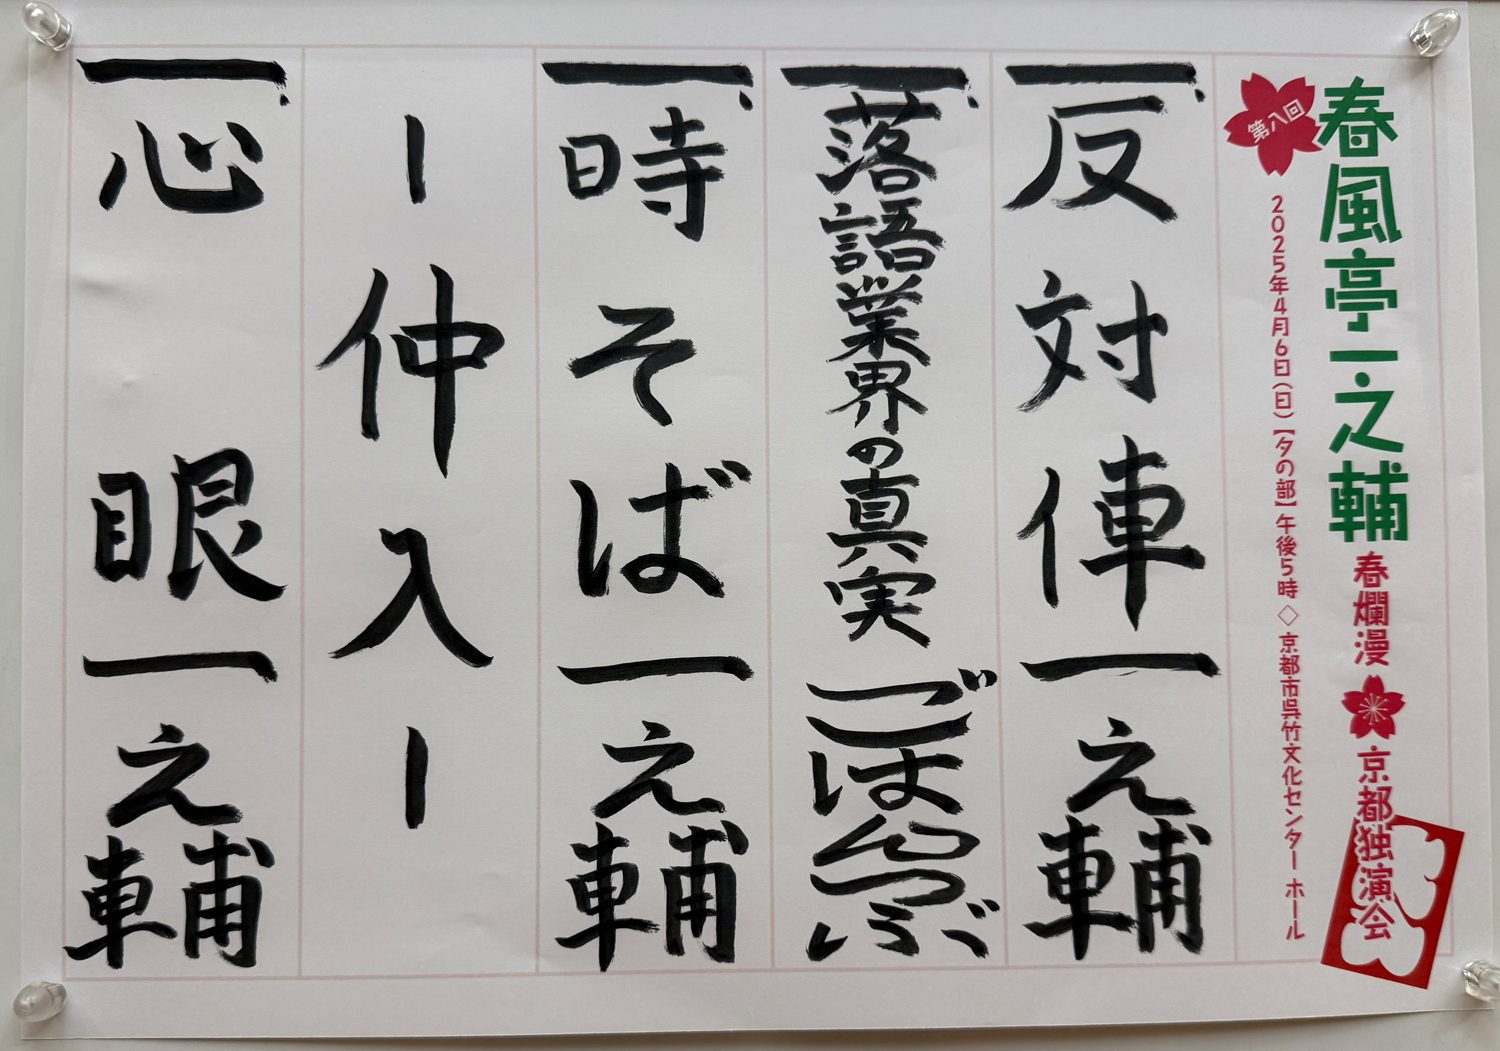 春風亭一之輔 春爛漫 京都独演会
第八回
2025年4月6日(日)【夕の部】午後5時◇京都市呉竹文化センター ホール
一、反対俥 一之輔
一、落語業界の真実 ごはんつぶ
一、時そば 一之輔
ー仲入ー
一、心眼 一之輔